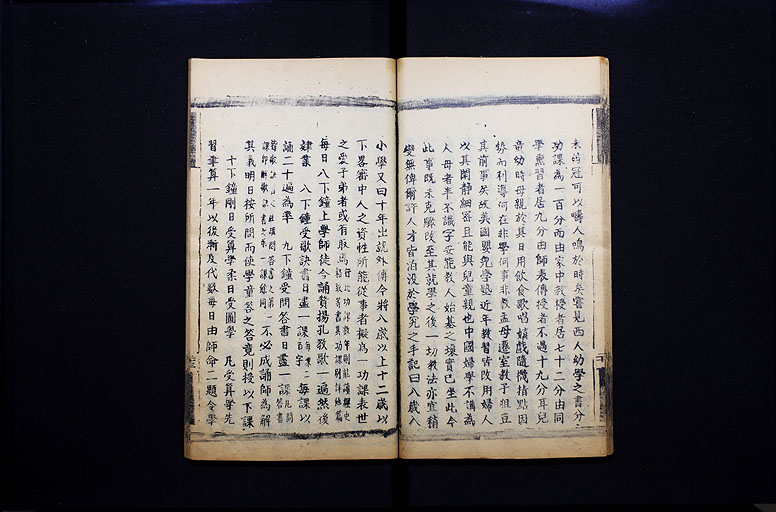 未弱冠可以疇人鳴於時矣嘗見西人幼學之書分
功課為一百分而由家中教授者居七十二分由同
學熏習者居九分由師表傳授者不過十九分耳兒
童幼時母親於其日用飲食歌唱嬉戲隨機指點因
勢而利導何在非學何事非教孟母遷室教子俎豆
其前事矣故美國嬰兒學塾近年教習皆改用婦人
以其閑靜細密且能與兒童親也中國婦學不講為
人母者半不識字安能教人始基之壞實已坐此今
此事既未克驟改至其就學之後一切教法亦宜稍
變無俾爾許人才皆汨没於學究之手記曰八歲入
小學又曰十年出就外傅今將八歲以上十二歲以
下畧審中人之資性所能從事者擬為一功課表世
之愛子弟者或有取焉
每日八下鐘上學師徒合誦贊揚孔教歌一遍然後
肄業 八下鐘受歌訣書日盡一課 每課以
誦二十遍為率 九下鐘受問答書日盡一課
不必成誦師為解
其義明日按所問而使學童答之答竟則授以下課
十下鐘剛日受算學柔日受圖學 凡受算學先
習筆算一年以後漸及代數每日由師命二題令學